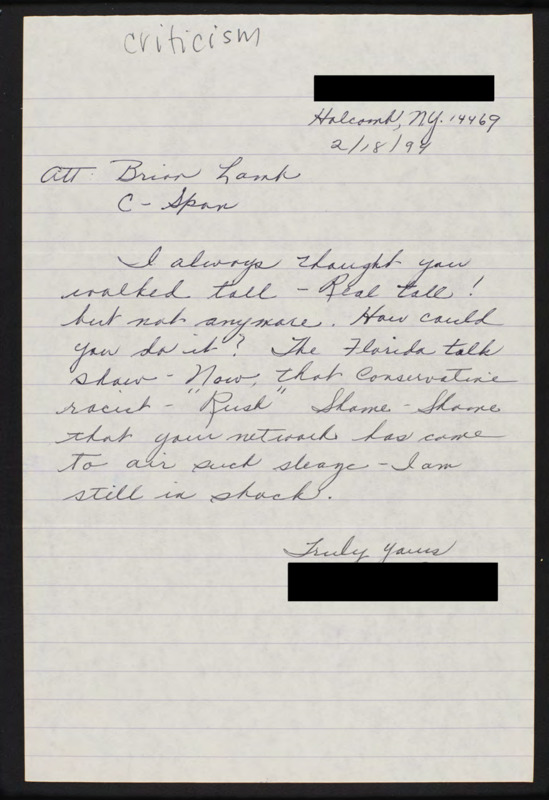 criticism
Holcomb, NY. 14469
2/18/94
Att. Brian Lamb
C-Span
I always thought you
walked tall - Real tall!
but not anymore. How could
you do it? The Florida talk
show - Now, that Conservative
racist - "Rush" Shame - Shame
that your network has come
to air such sleaze - I am
still in shock.
Truly Yours